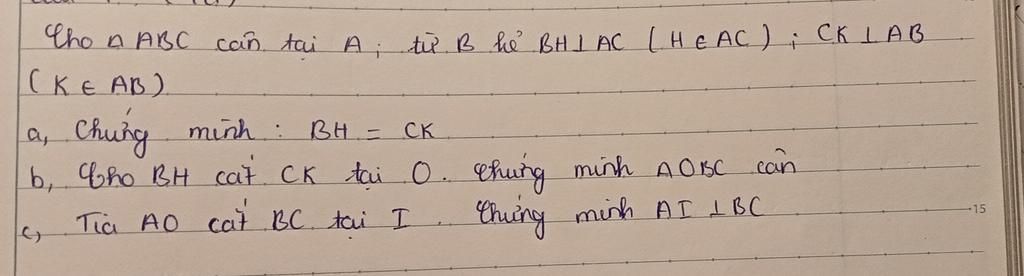 Cho △ ABC cân tại A; từ B kẻ BH⊥AC (H∈AC); CK⊥AB
(K∈AB)
a, Chứng minh: BH = CK
b, Cho BH cắt CK tại O. Chứng minh △OBC cân
c, Tia AO cắt BC tại I. Chứng minh AI⊥BC
15